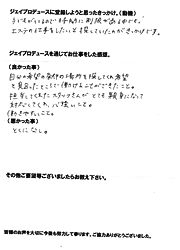 ジェイプロデュースに登録しようと思ったきっかけ。(動機)
子どもがいるので時間に制限があるのですが、
エステのお仕事をしたいと探していたのがきっかけです。
ジェイプロデュースを通じてお仕事をした感想。
(良かった事)
自分の希望の条件の場所を探してくれ希望
と見合ったところで働けることができたこと。
担当してくれたスタッフさんがとても親身になって
対応してくれ、心強いこと。
(悪かった事)
とくになし。
その他ご要望等ございましたらお教え下さい。
皆様のお声を大切に今後も努力して参ります。ご協力ありがとうございました。